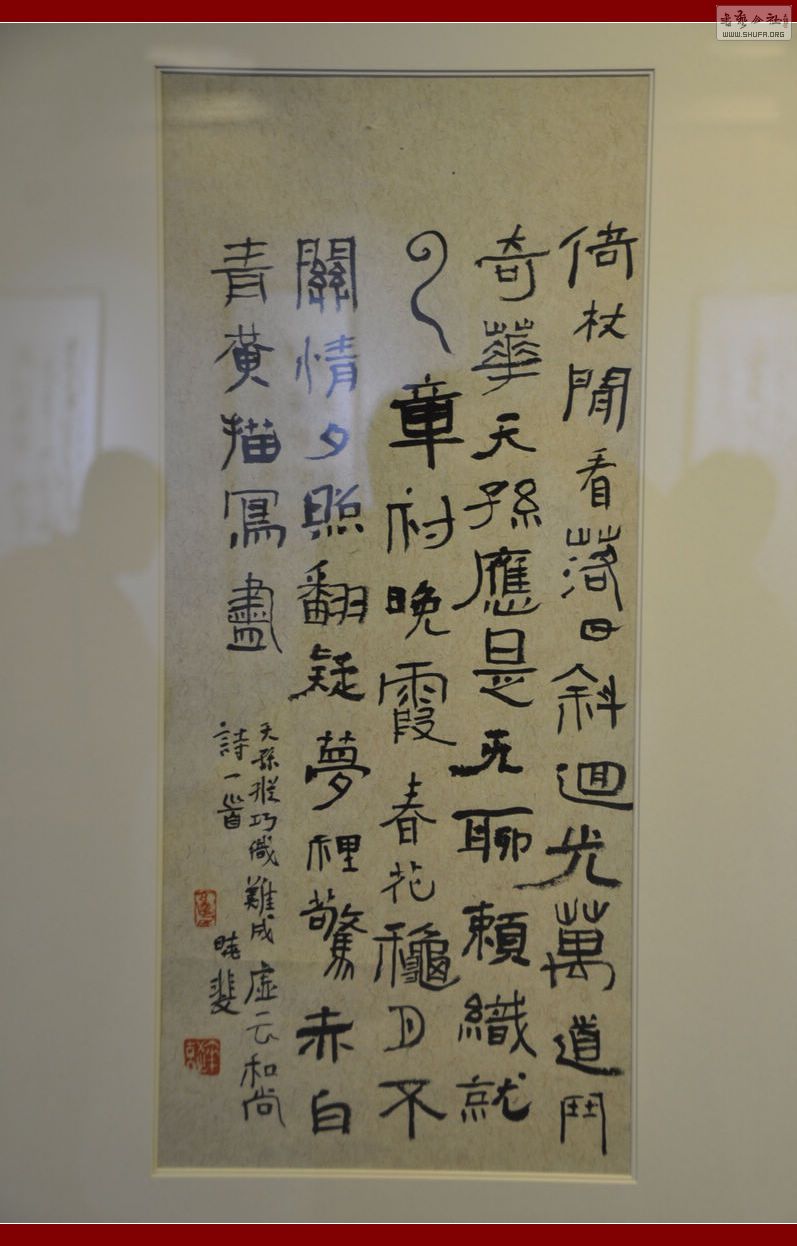 倚杖閒看落日斜迴光萬道鬥
奇華天孫應是无聊賴織就
章付晚霞春花龝月不
關情夕照翻疑夢裡驚赤白
青黃描寫盡
天孫縱巧織難成虛云和尚
詩一首
晓斐
書藝公社
WWW.SHUFA.ORG